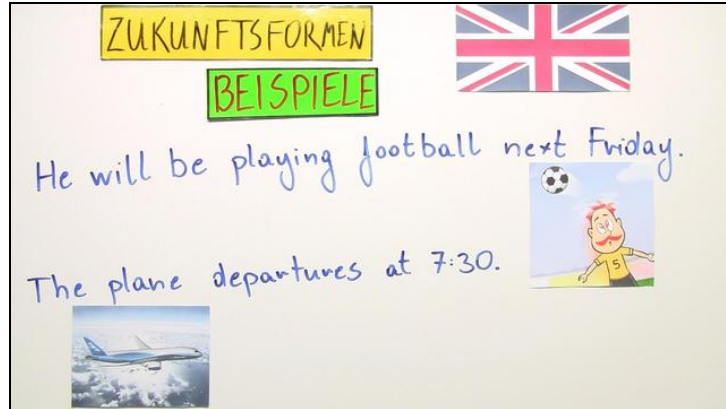 ZUKUNFTSFORMEN
BEISPIELE
He will be playing football next Friday.
5
The plane departures at 7:30.